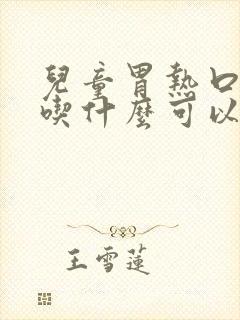 兒童胃熱口
喫什麼可以
王雪蓮